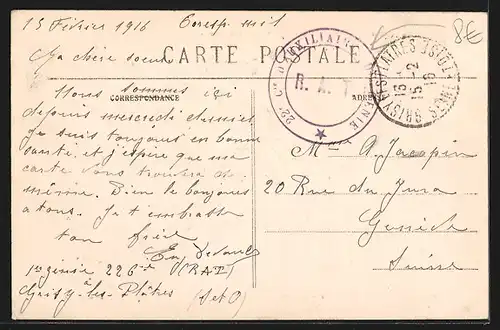 15 Février 1916 Corresp. mil
8€
Ma chère soeur
CARTE POSTALE
R. A. T.
GRISY-LES-PLATRES
16
15 -2
16
CORRESPONDANCE
ADRESSE
Nous sommes ici
depuis mercredi dernier
Je suis toujours en bonne
santé et j'espère que ma
carte vous trouvera de
même. Bien le bonjour
à tous. Je t'embrasse
ton frère
1er génie 22 Cie (RAT)
à
Grisy-les-Plâtres (S et O)
Mme A. Jacopin
20 Rue du Jura
Genève
Suisse